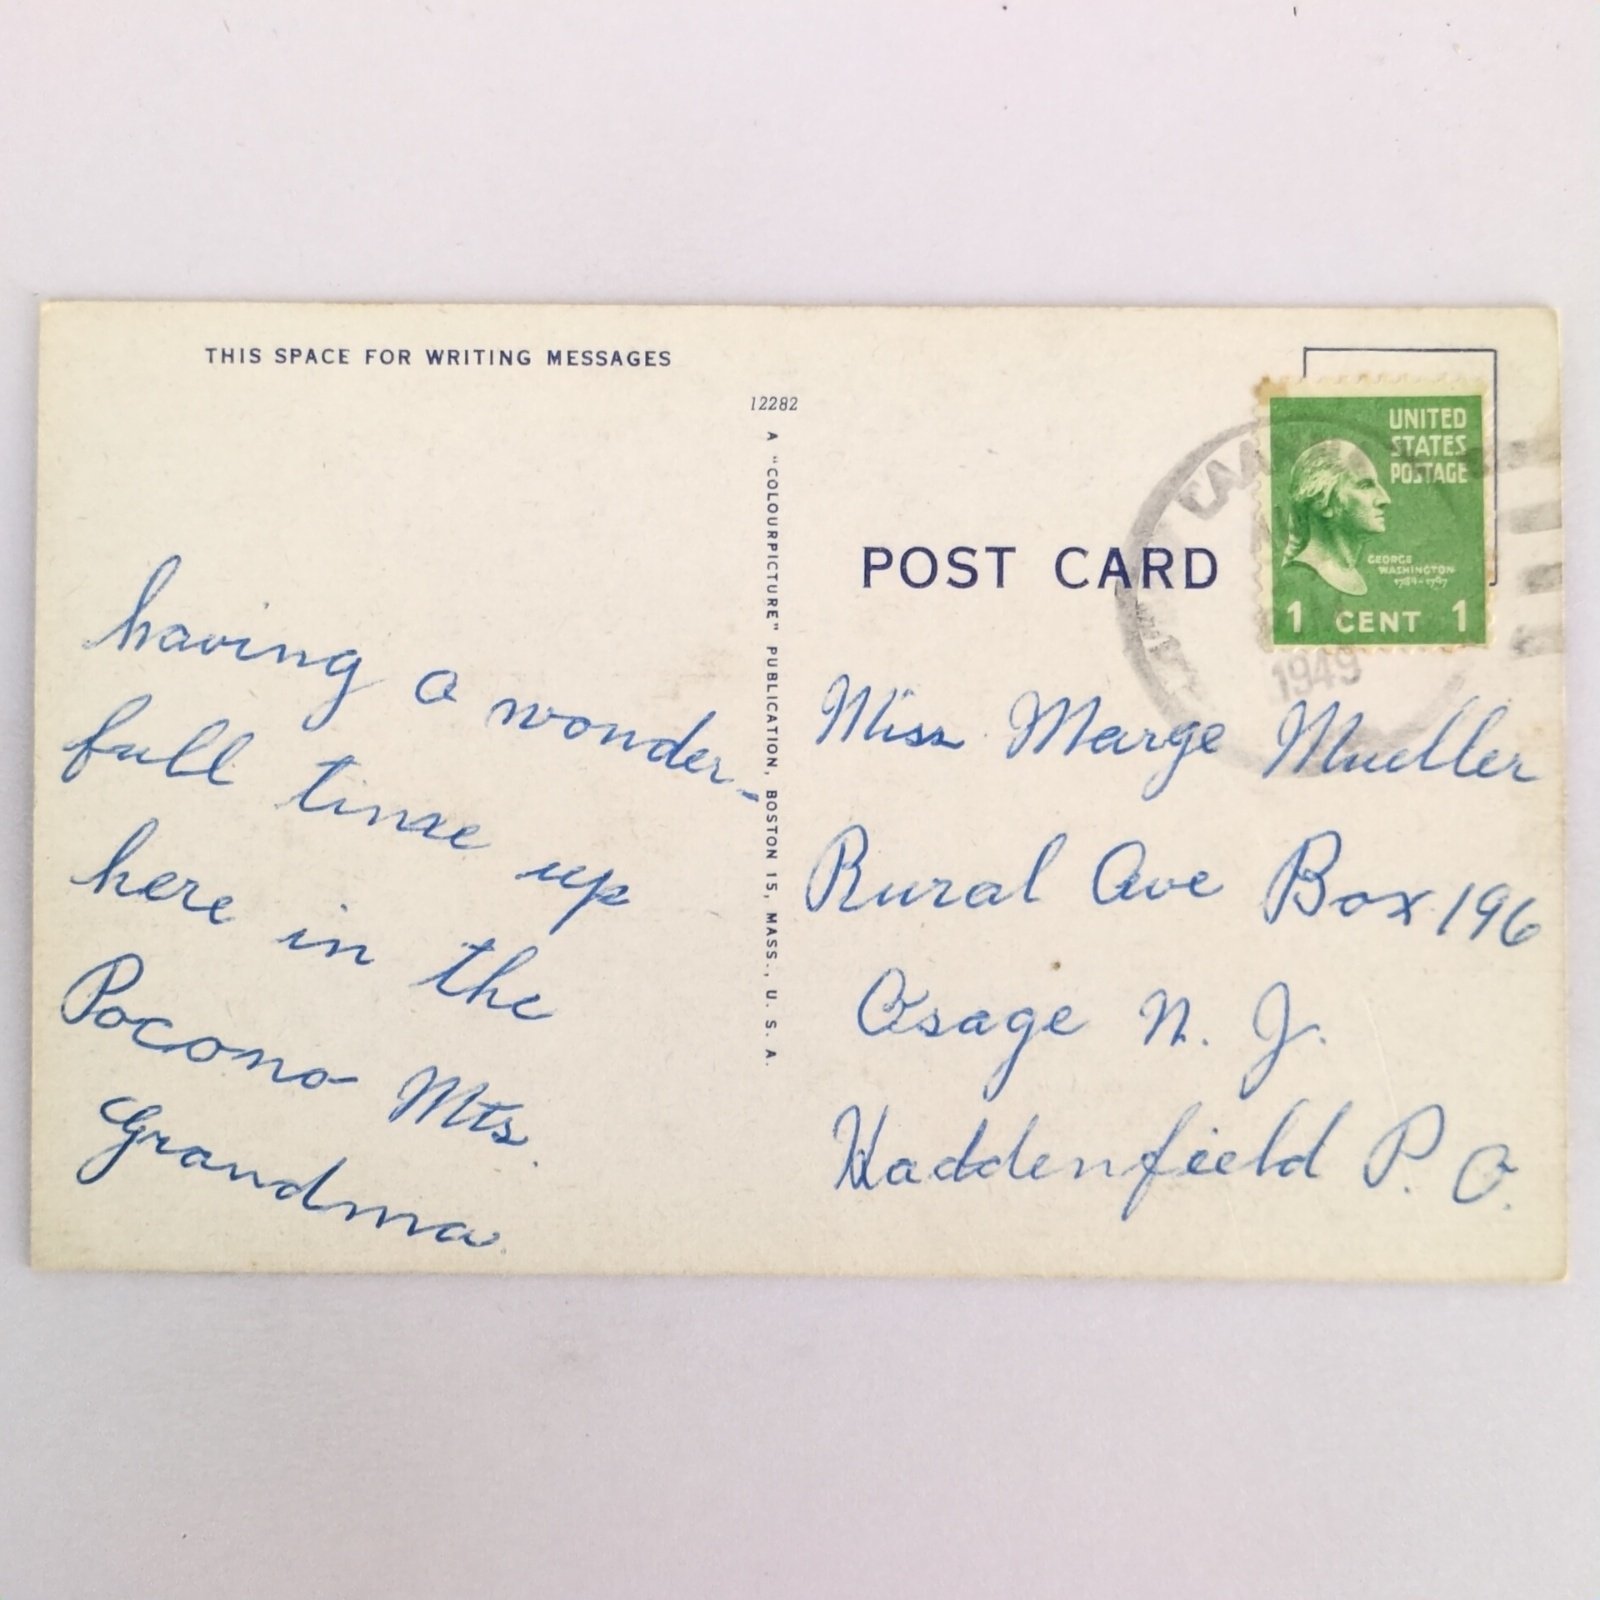 THIS SPACE FOR WRITING MESSAGES
having a wonder-
full time up
here in the
Pocono Mts.
Grandma.
12282
A "COLOURPICTURE" PUBLICATION, BOSTON 15, MASS., U. S. A.
POST CARD
UNITED
STATES
POSTAGE
GEORGE
WASHINGTON
1789-1797
1 CENT 1
1949
Miss Marge Mueller
Rural Ave Box 196
Osage N. J.
Haddenfield P. O.